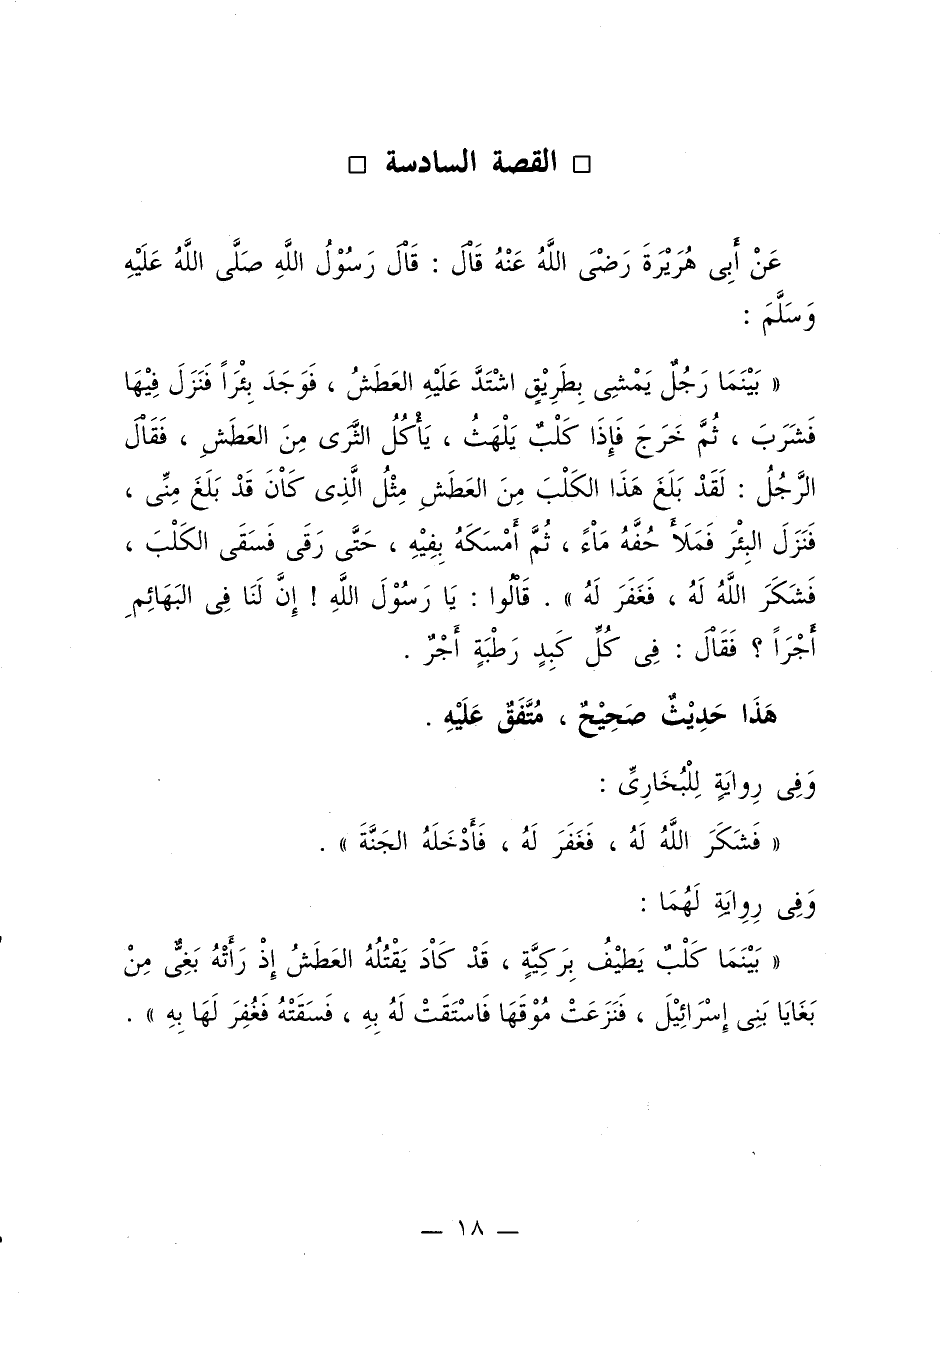 □ القصة السادسة □
عَنْ أَبِى هُرَيْرَةَ رَضْىَ اللَّهُ عَنْهُ قَاْلَ : قَاْلَ رَسُوْلُ اللَّهِ صَلَّى اللَّهُ عَلَيْهِ
وَسَلَّمَ :
« بَيْنَمَا رَجُلٌ يَمْشِى بِطَرِيْقٍ اشْتَدَّ عَلَيْهِ العَطَشُ ، فَوَجَدَ بِئْرَاً فَنَزَلَ فِيْهَا
فَشَرَبَ ، ثُمَّ خَرَجَ فَإِذَا كَلْبٌ يَلْهَثُ ، يَأْكُلُ الثَّرَى مِنَ العَطَشِ ، فَقَاْلَ
الرَّجُلُ : لَقَدْ بَلَغَ هَذَا الكَلْبَ مِنَ العَطَشِ مِثْلُ الَّذِى كَاْنَ قَدْ بَلَغَ مِنِّى ،
فَنَزَلَ البِئْرَ فَمَلَأَ خُفَّهُ مَاْءً ، ثُمَّ أَمْسَكَهُ بِفِيْهِ ، حَتَّى رَقَى فَسَقَى الكَلْبَ ،
فَشَكَرَ اللَّهُ لَهُ ، فَغَفَرَ لَهُ » . قَاْلُوا : يَا رَسُوْلَ اللَّهِ ! إِنَّ لَنَا فِى البَهَائِمِ
أَجْرَاً ؟ فَقَاْلَ : فِى كُلِّ كَبِدٍ رَطْبَةٍ أَجْرٌ .
هَذَا حَدِيْثٌ صَحِيْحٌ ، مُتَّفَقٌ عَلَيْهِ .
وَفِى رِوايَةٍ لِلْبُخَارِىِّ :
« فَشَكَرَ اللَّهُ لَهُ ، فَغَفَرَ لَهُ ، فَأَدْخَلَهُ الجَنَّةَ » .
وَفِى رِوِايَةِ لَهُمَا :
« بَيْنَمَا كَلْبٌ يَطِيْفُ بِرَكِيَّةٍ ، قَدْ كَاْدَ يَقْتُلُهُ العَطَشُ إِذْ رَأَتْهُ بَغِىٌّ مِنْ
بَغَايَا بَنِى إِسْرَائِيْلَ ، فَنَزَعَتْ مُوْقَهَا فَاسْتَقَتْ لَهُ بِهِ ، فَسَقَتْهُ فَغُفِرَ لَهَا بِهِ » .
— ١٨ —